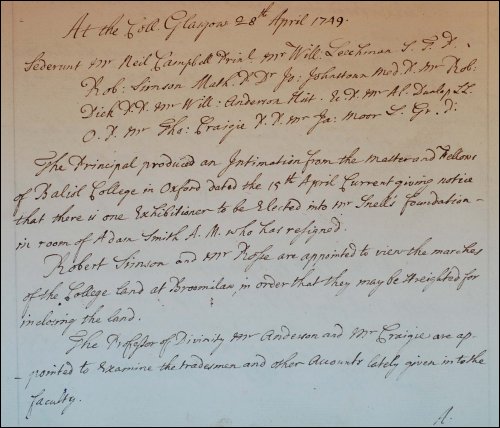 At the Coll. Glasgow 28th April 1749.
Sederunt Mr Neil Campbell Prinl. Mr Will: Leechman S. T. P.
Rob: Simson Math. P. Dr Jo: Johnstoun Med. P. Mr Rob:
Dick P. P. Mr Will: Anderson Hist. E. P. Mr Al. Dunlop LL.
O. P. Mr Tho: Craigie P. P. Mr Ja: Moor L. Gr. P:
The Principal produced an Intimation from the Master and Fellows
of Baliol College in Oxford dated the 15th April Current giving notice
that there is one Exhibitioner to be Elected into Mr Snell's foundation -
in room of Adam Smith A. M. who has resigned.
Robert Simson and Mr Rosse are appointed to view the marches
of the College land at Broomilaw, in order that they may be streighted for
inclosing the land.
The Professor of Divinity Mr Anderson and Mr Craigie are ap-
- pointed to Examine the tradesmen and other Accounts lately given in to the
faculty.